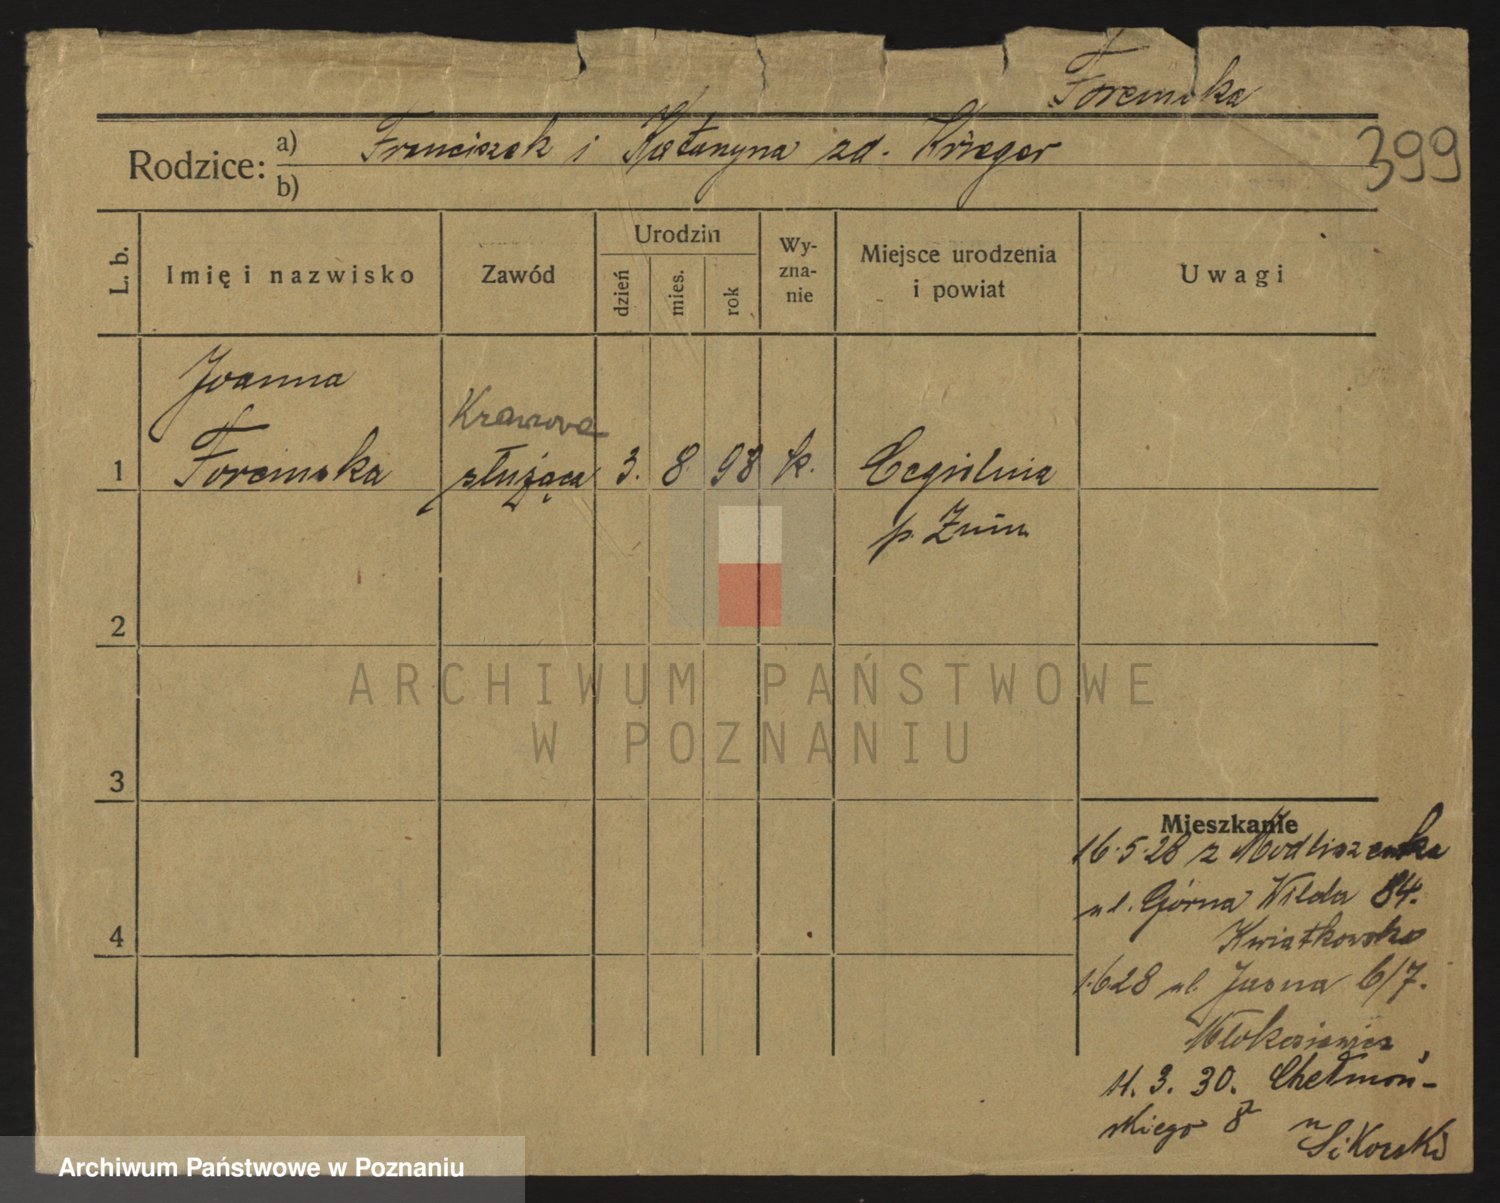 Foremska
399
Rodzice:
a) Franciszek i Katarzyna zd. Krieger
b)
L. b.
Imię i nazwisko
Zawód
Urodzin
dzień
mies.
rok
Wy-
zna-
nie
Miejsce urodzenia
i powiat
Uwagi
Joanna
Krawcowa
1 Foremska służąca 3. 8. 98 k. Cegielnia
p. Żnin
2
3
4
Mieszkanie
16.5.28 z Modliszewka
ul. Górna Wilda 84.
Kwiatkowska
1.6.28 ul. Jasna 6/7.
11. 3. 30. Chełmoń-
skiego 8
u Sikorski
ARCHIWUM PAŃSTWOWE
W POZNANIU
Archiwum Państwowe w Poznaniu